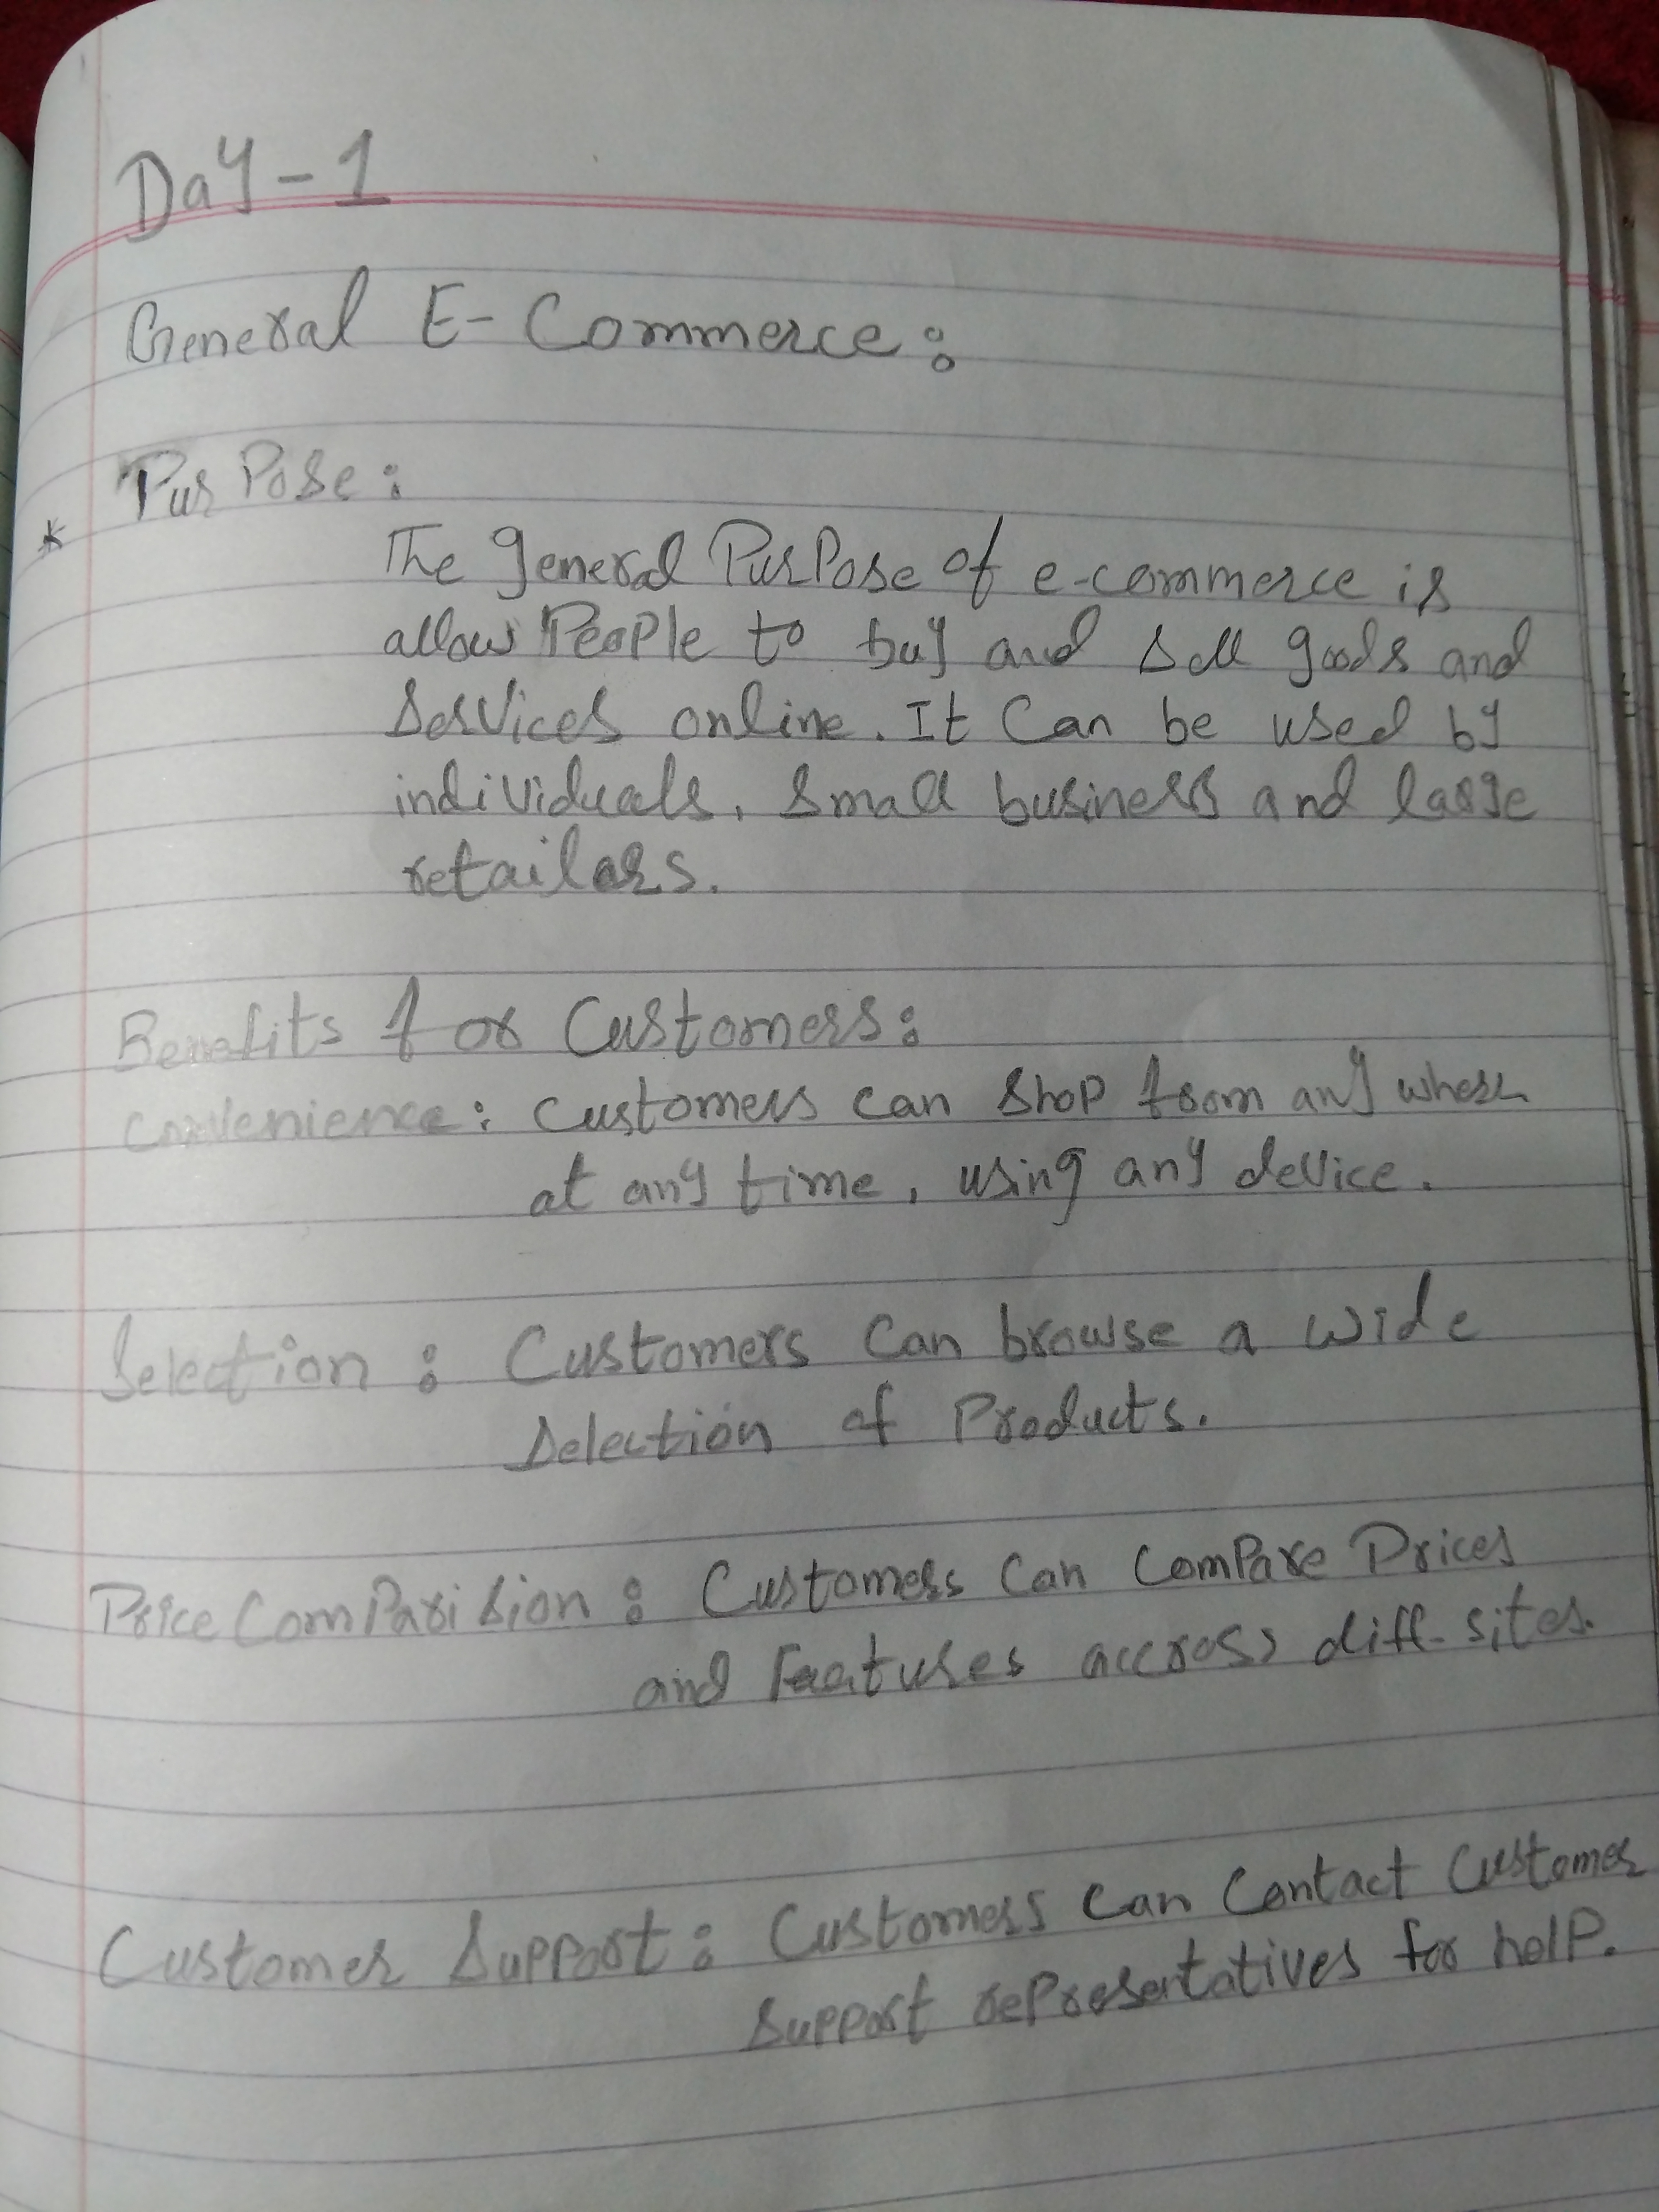 Day-1
General E-Commerce:
PurPose:
* The general PurPose of e-commerce is
allow PeoPle to buy and sell goods and
services online. It Can be used by
individuals, small business and large
retailers.
Benefits for Customers:
Convenience: Customers can shop from any where
at any time, using any device.
Selection: Customers Can browse a wide
selection of Products.
Price ComParision: Customers Can ComPare Prices
and Features accross diff- sites.
Customer Support: Customers Can Contact Customer
support rePresentatives for help.